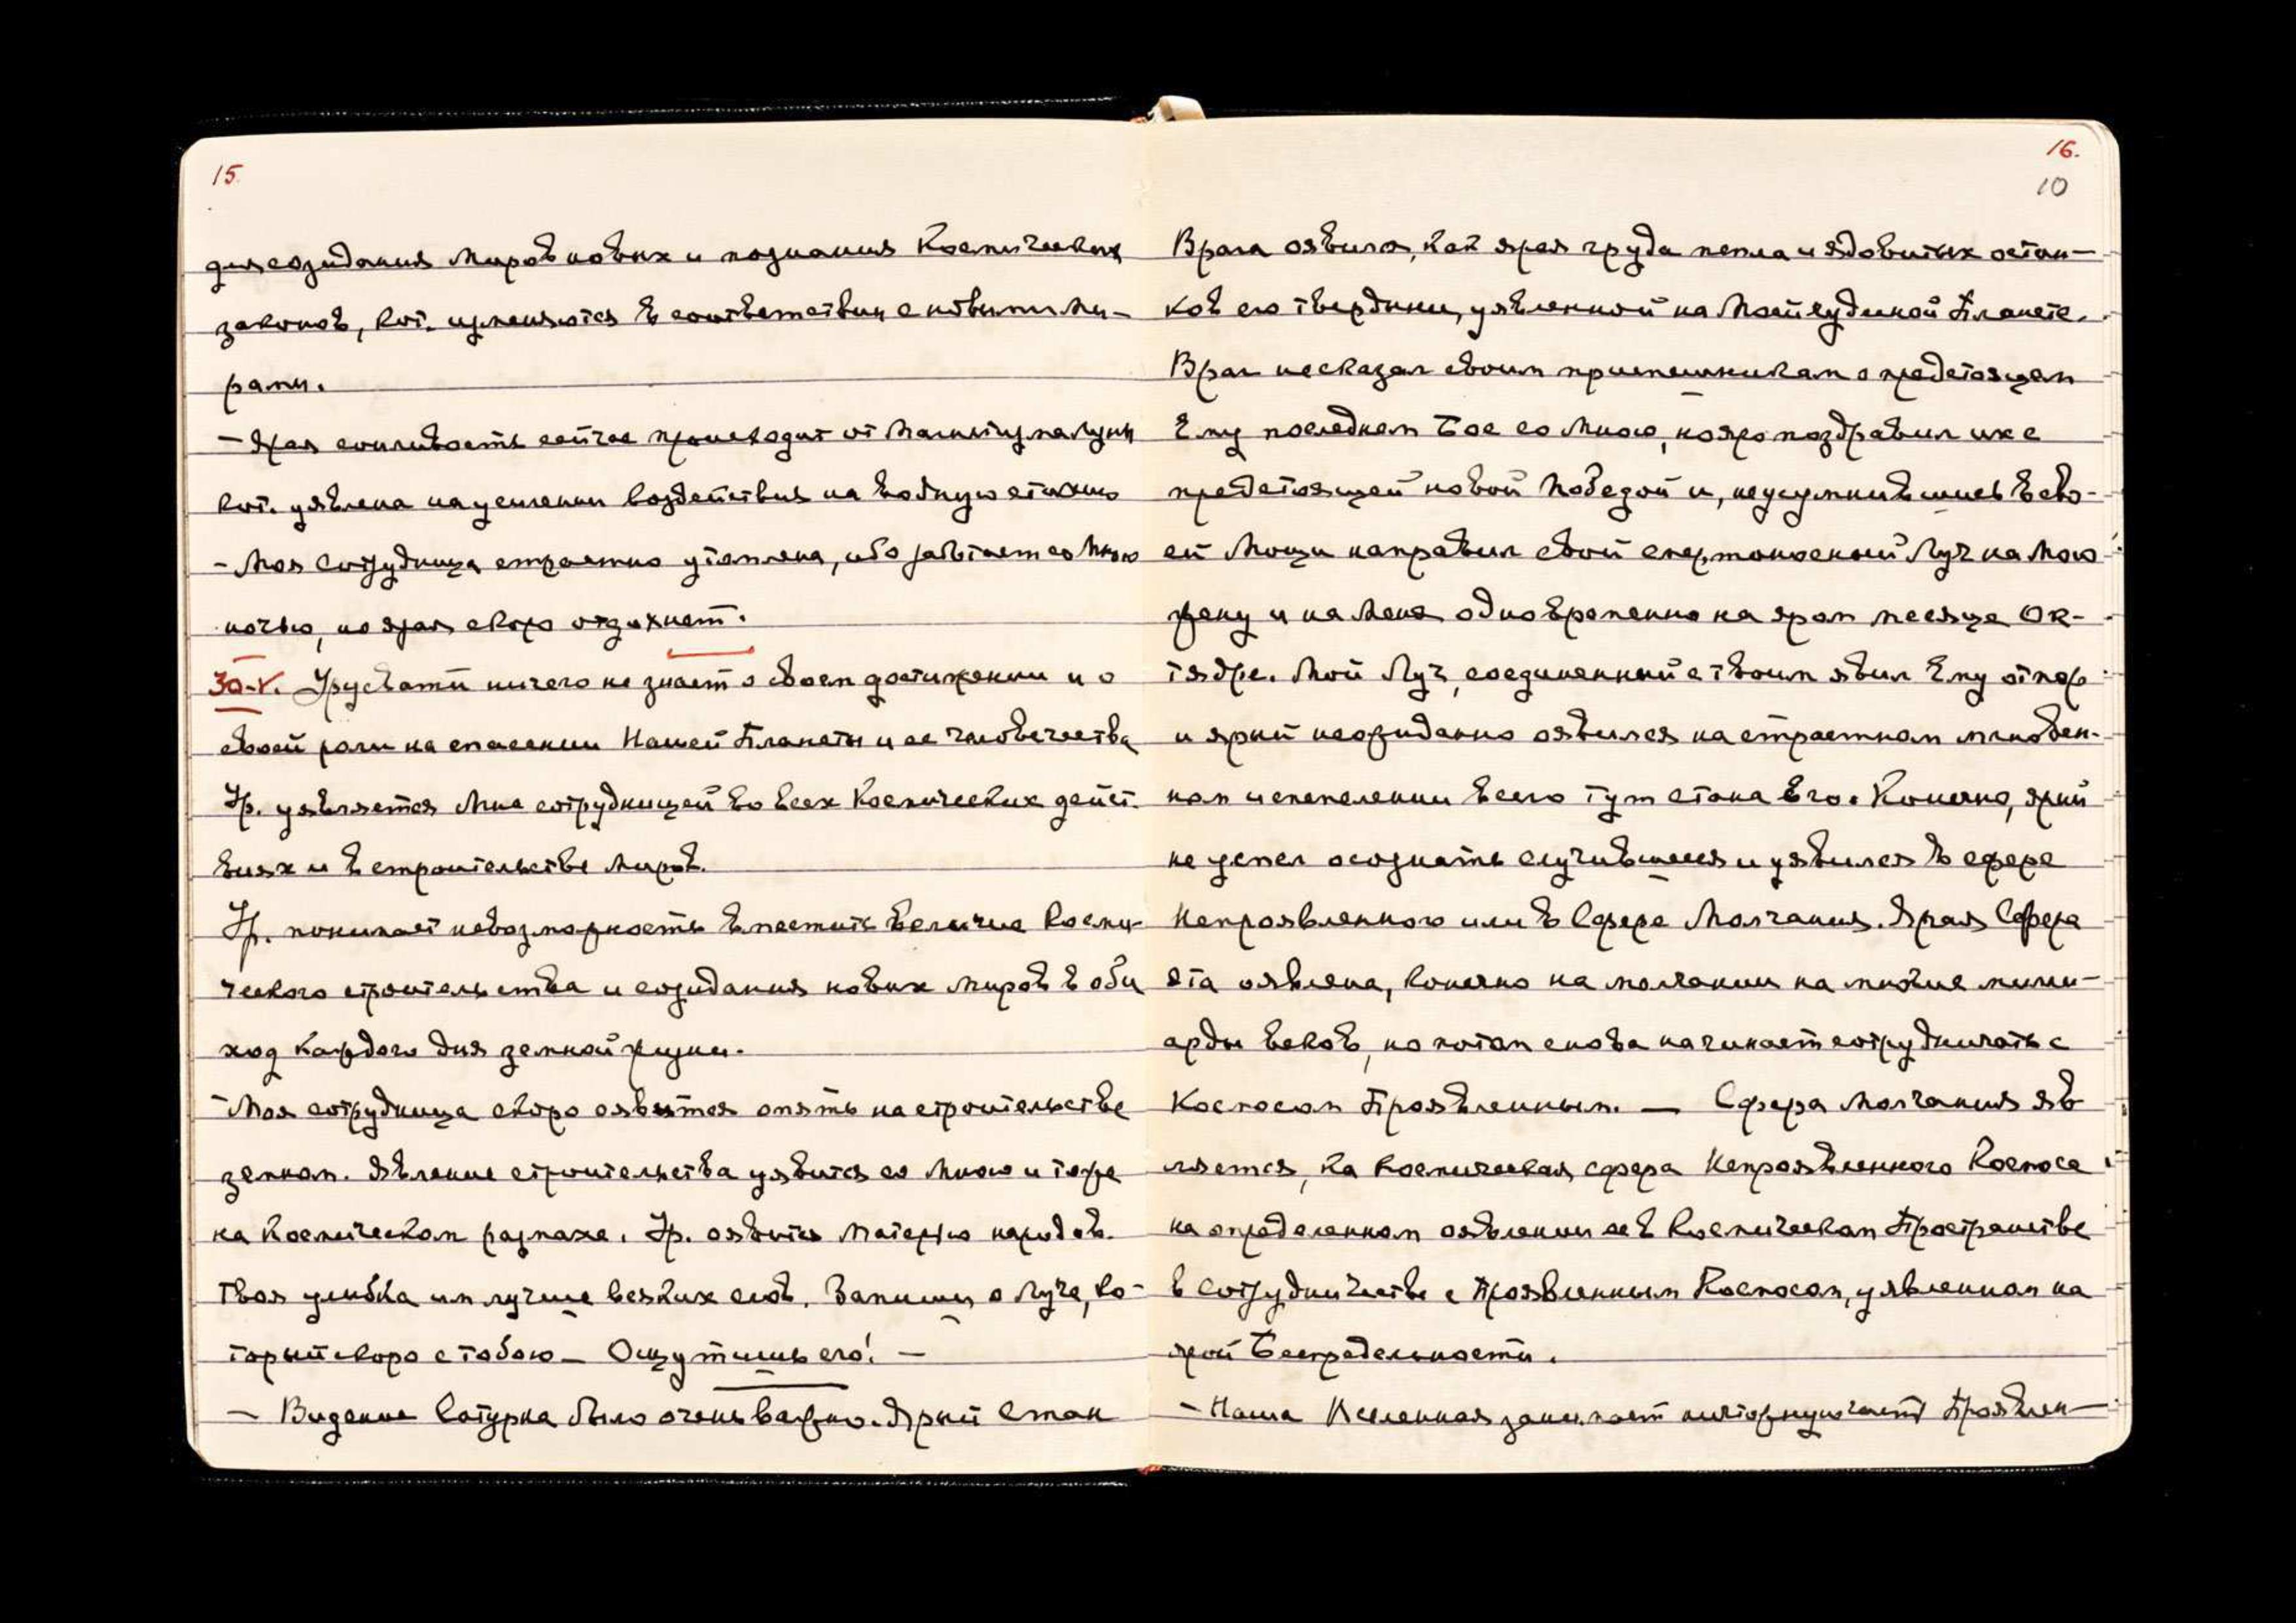 15.
для созидания Миров новых и познания Космических
законов, кот. изменяются в соответствии с новыми Ми-
рами.
— Ярая сонливость сейчас происходит от Магнетизма Луны
кот. уявлена на усилении воздействия на водную стихию
— Моя сотрудница страстно утомлена, ибо работает со Мною
ночью, но ярая скоро отдохнет.
30-V. Урусвати ничего не знает о своем достижении и о
своей роли на спасении Нашей Планеты и ее человечества
Ур. уявляется Мне сотрудницей во всех Космических дейст.
виях и в строительстве Миров.
Ур. понимает невозможность вместить величие Косми-
ческого строительства и созидания новых Миров в оби
ход каждого дня земной жизни.
— Моя сотрудница скоро оявится опять на строительстве
земном. Явление строительства уявится со Мною и тоже
на Космическом размахе. Ур. оявится Матерью народов.
Твоя улыбка им лучше всяких слов. Запиши о Луче, ко-
торый скоро с тобою — Ощутишь его! —
— Видение Сатурна было очень важно. Ярый Стан
16.
10
Врага оявился, как ярая груда пепла и ядовитых остан-
ков его твердыни, уявленной на Мощной Планете.
Враг не сказал своим приспешникам о предстоящем
Ему последнем Бое со Мною, но яро поздравил их с
предстоящей новой Победой и, не усумнившись в сво-
ей Мощи направил свой смертоносный Луч на Мою
жену и на Меня одновременно на яром месяце Ок-
тябре. Мой Луч, соединенный с твоим явил Ему отпор
и ярый неожиданно оявился на страстном мгновен-
ном испепелении всего тут стана Его. Конечно, ярый
не успел осознать случившееся и уявился в сфере
Непроявленного или в Сфере Молчания. Ярая Сфера
эта оявлена, конечно на молчании на многие милли-
арды веков, но потом снова начинает сотрудничать с
Космосом Проявленным. — Сфера Молчания яв
ляется, ка Космическая сфера Непроявленного Космоса
на определенном оявлении ее в Космическом Пространстве
в сотрудничестве с Проявленным Космосом, уявленном на
ярой Беспредельности.
— Наша Вселенная занимает ничтожную часть Проявлен-